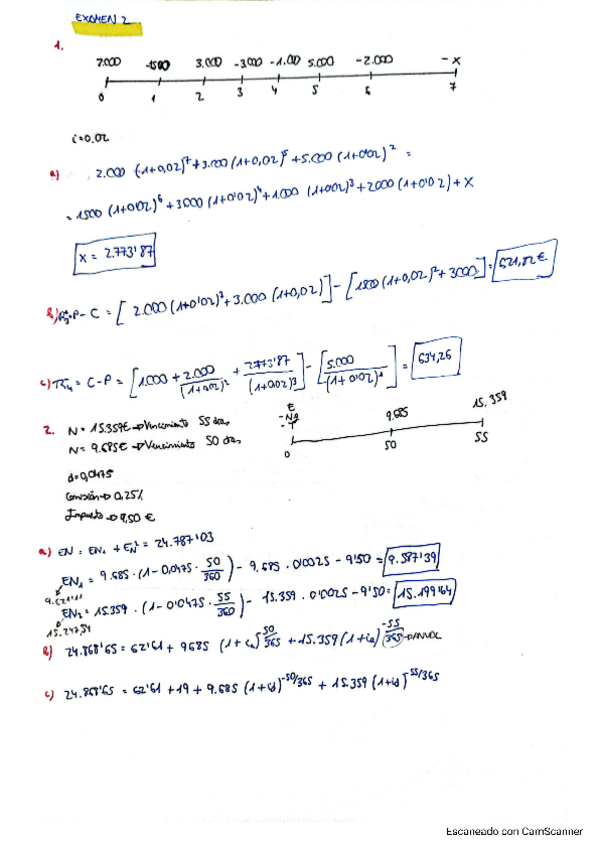 EXAMEN 2
1.
2.000 -1500 3.000 -3000 -1.000 5.000 -2.000 -x
0 1 2 3 4 5 6 7
i=0,02
a) 2.000 (1+0,02)⁷+3.000 (1+0,02)⁵+5.000 (1+0'02)² =
= 1500 (1+0'02)⁶+3000 (1+0'02)⁴+1.000 (1+0'02)³+2000 (1+0'02)+X
X = 2.773'87
b) P - C = [2.000 (1+0'02)³+3.000 (1+0,02)] - [1500 (1+0,02)²+3000] = 521,82€
c) = C-P = [1.000 + 2.000/(1+0,02)² + 2773'87/(1+0'02)³] - [5.000/(1+0'02)¹] = 634,26
2. N = 15.359€ → Vencimiento 55 días
N = 9.685€ → Vencimiento 50 días
E
9.685 15.359
0 50 55
d=0,0475
Comisión → 0,25%
Impuesto → 9,50 €
a) EN = EN₁ + EN₂ = 24.787'03
EN₁ = 9.685 · (1-0,0475 · 50/360) - 9,685 · 0'0025 - 9'50 = 9.587'39
9.621'11
EN₂ = 15.359 · (1-0'0475 · 55/360) - 15.359 · 0'0025 - 9'50 = 15.199'64
15.247,54
b) 24.868'65 = 62'61 + 9685 (1+i)^50/365 + 15.359 (1+i)^-55/365 → ANUAL
c) 24.868'65 = 62'61 + 19 + 9.685 (1+i)^-50/365 + 15.359 (1+i)^-55/365
Escaneado con CamScanner